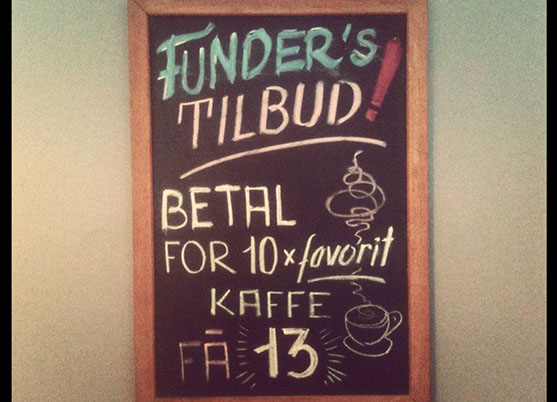 FUNDER'S
TILBUD!
BETAL
FOR 10 x favorit
KAFFE
FÅ 13